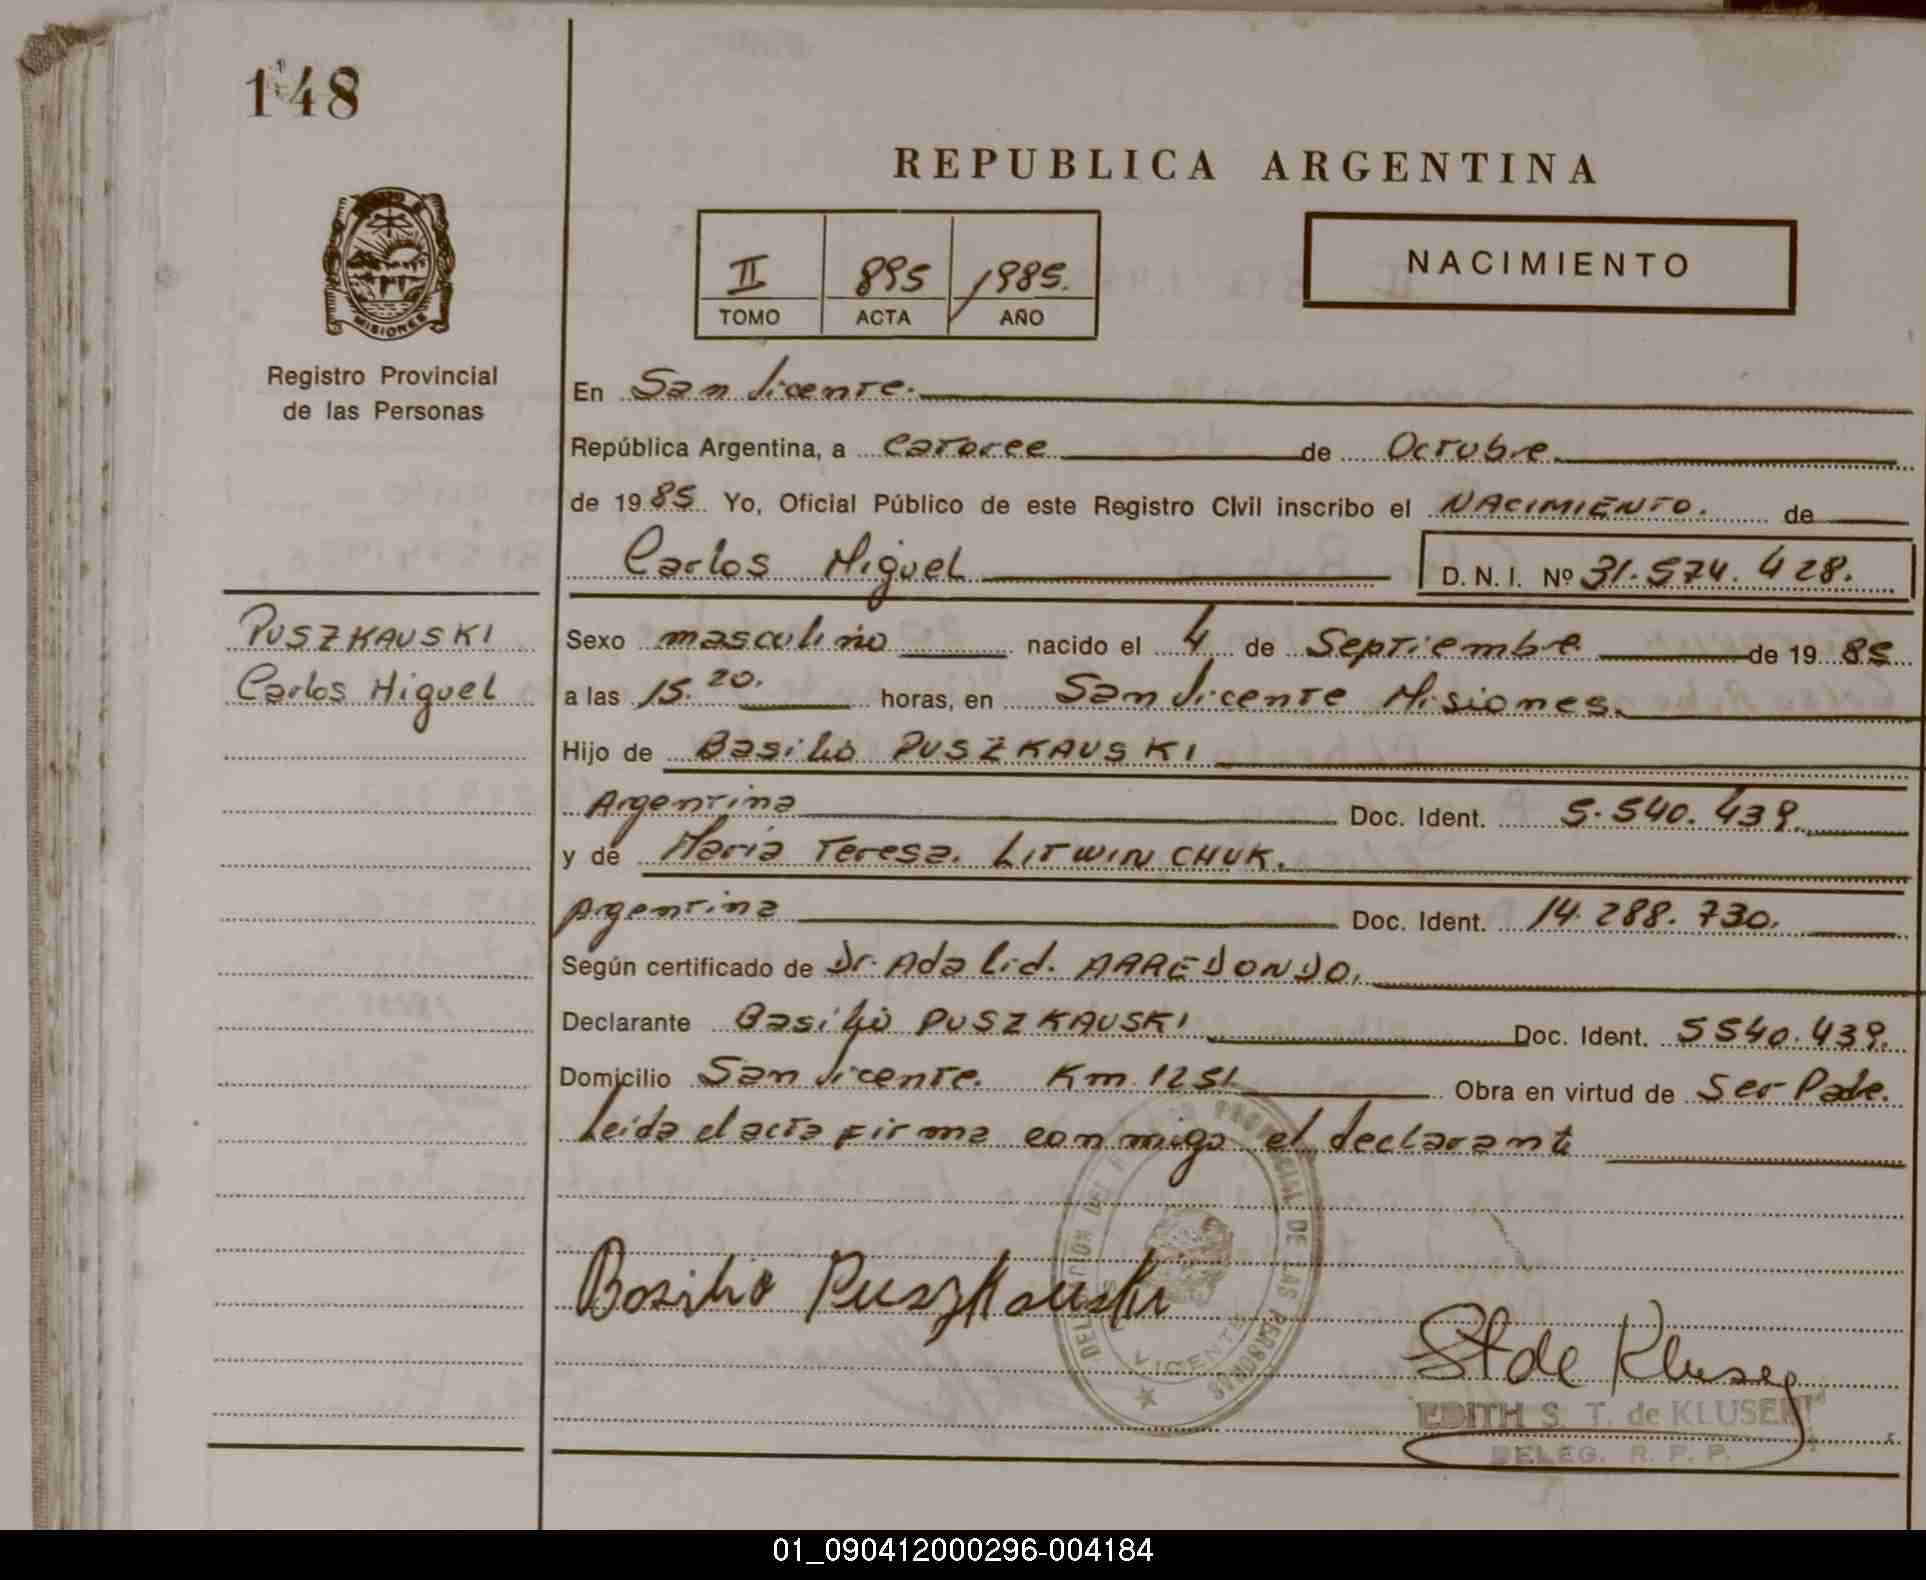 148
REPUBLICA ARGENTINA
II 895 1985.
TOMO ACTA AÑO
NACIMIENTO
MISIONES
Registro Provincial
de las Personas
En San Vicente.
República Argentina, a Catorce de Octubre
de 1985 Yo, Oficial Público de este Registro Civil inscribo el NACIMIENTO. de
Carlos Miguel D. N. I. Nº 31.574.428.
PUSZKAUSKI
Carlos Miguel
Sexo masculino nacido el 4 de Septiembre de 1985
a las 15.20. horas, en San Vicente Misiones.
Hijo de Basilio PUSZKAUSKI
Argentina Doc. Ident. 5.540.439.
y de María Teresa. LITWINCHUK.
Argentina Doc. Ident. 14.288.730.
Según certificado de Dr. Adalid. ARREDONDO.
Declarante Basilio PUSZKAUSKI Doc. Ident. 5540.439.
Domicilio San Vicente. Km 1251 Obra en virtud de Ser Padre.
Leida el acta firma conmigo el declarante
DELEGACION DEL REGISTRO PROVINCIAL DE LAS PERSONAS
VICENTE
Basilio Puszkauski
St de Kluser
EDITH S. T. de KLUSER
DELEG. R. P. P.
01_090412000296-004184